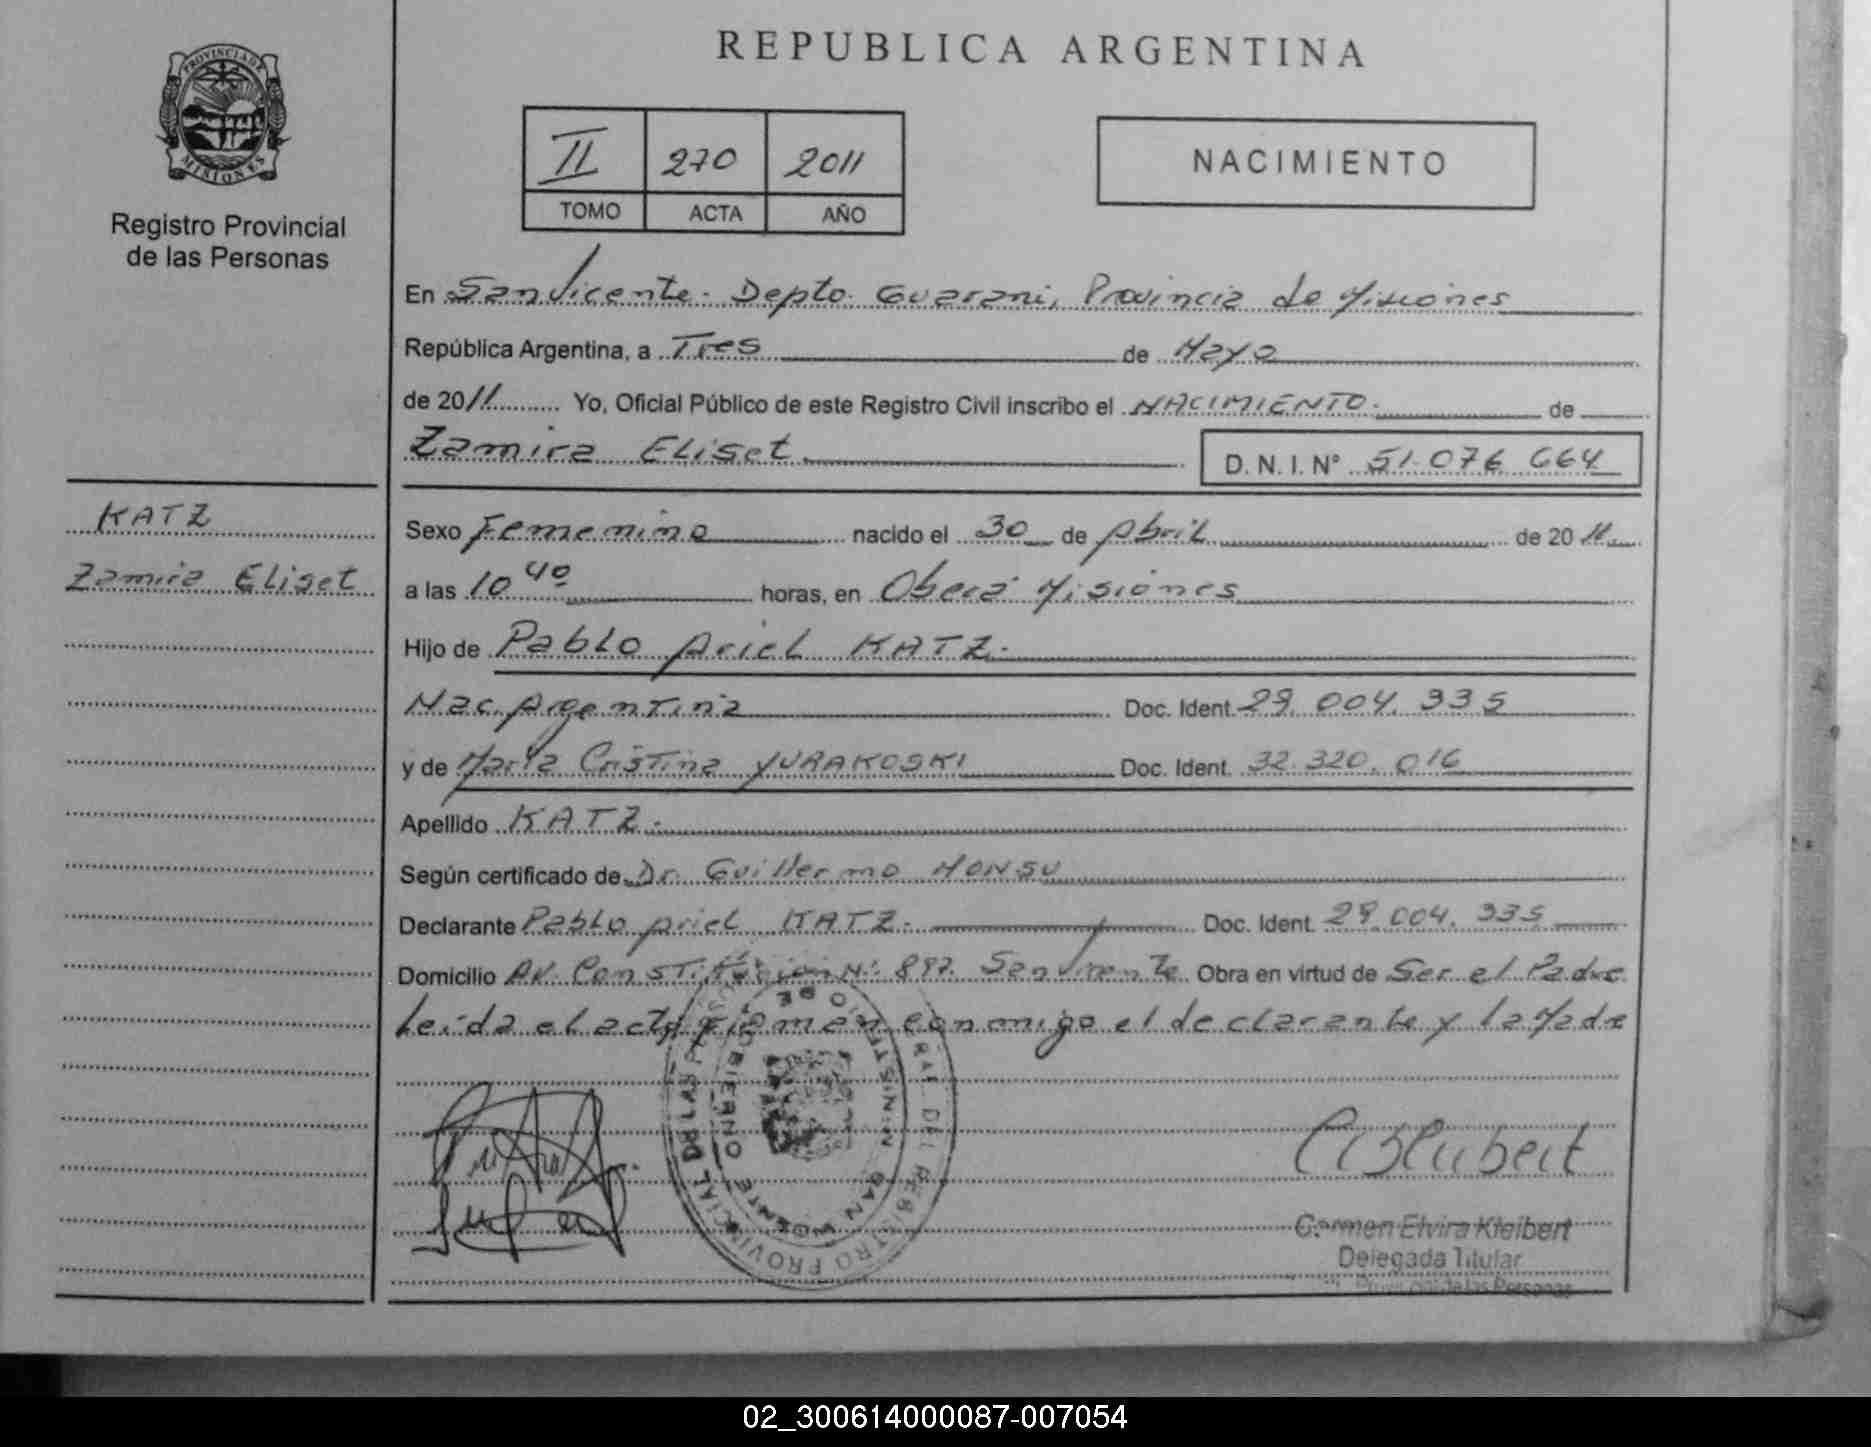 REPUBLICA ARGENTINA
PROVINCIA DE
MISIONES
Registro Provincial
de las Personas
II 270 2011
TOMO ACTA AÑO
NACIMIENTO
En San Vicente. Depto. Guarani, Provincia de Misiones
República Argentina, a Tres de Mayo
de 2011 Yo, Oficial Público de este Registro Civil inscribo el NACIMIENTO. de
Zamira Eliset
D. N. I. Nº 51.076.664
KATZ
Zamira Eliset
Sexo Femenino nacido el 30 de Abril de 2011
a las 10 40 horas, en Oberá Misiones
Hijo de Pablo Ariel KATZ.
Nac. Argentina Doc. Ident. 29.004.335
y de María Cristina YURAKOSKI Doc. Ident. 32.320.016
Apellido KATZ.
Según certificado de Dr. Guillermo MONSU
Declarante Pablo Ariel KATZ. Doc. Ident. 29.004.335
Domicilio AV. Constitución Nº 897. San Vicente Obra en virtud de Ser el Padre
Leida el acta firman conmigo el declarante y la Madre
Carmen Elvira Kleibert
Delegada Titular
Provincial de las Personas
02_300614000087-007054